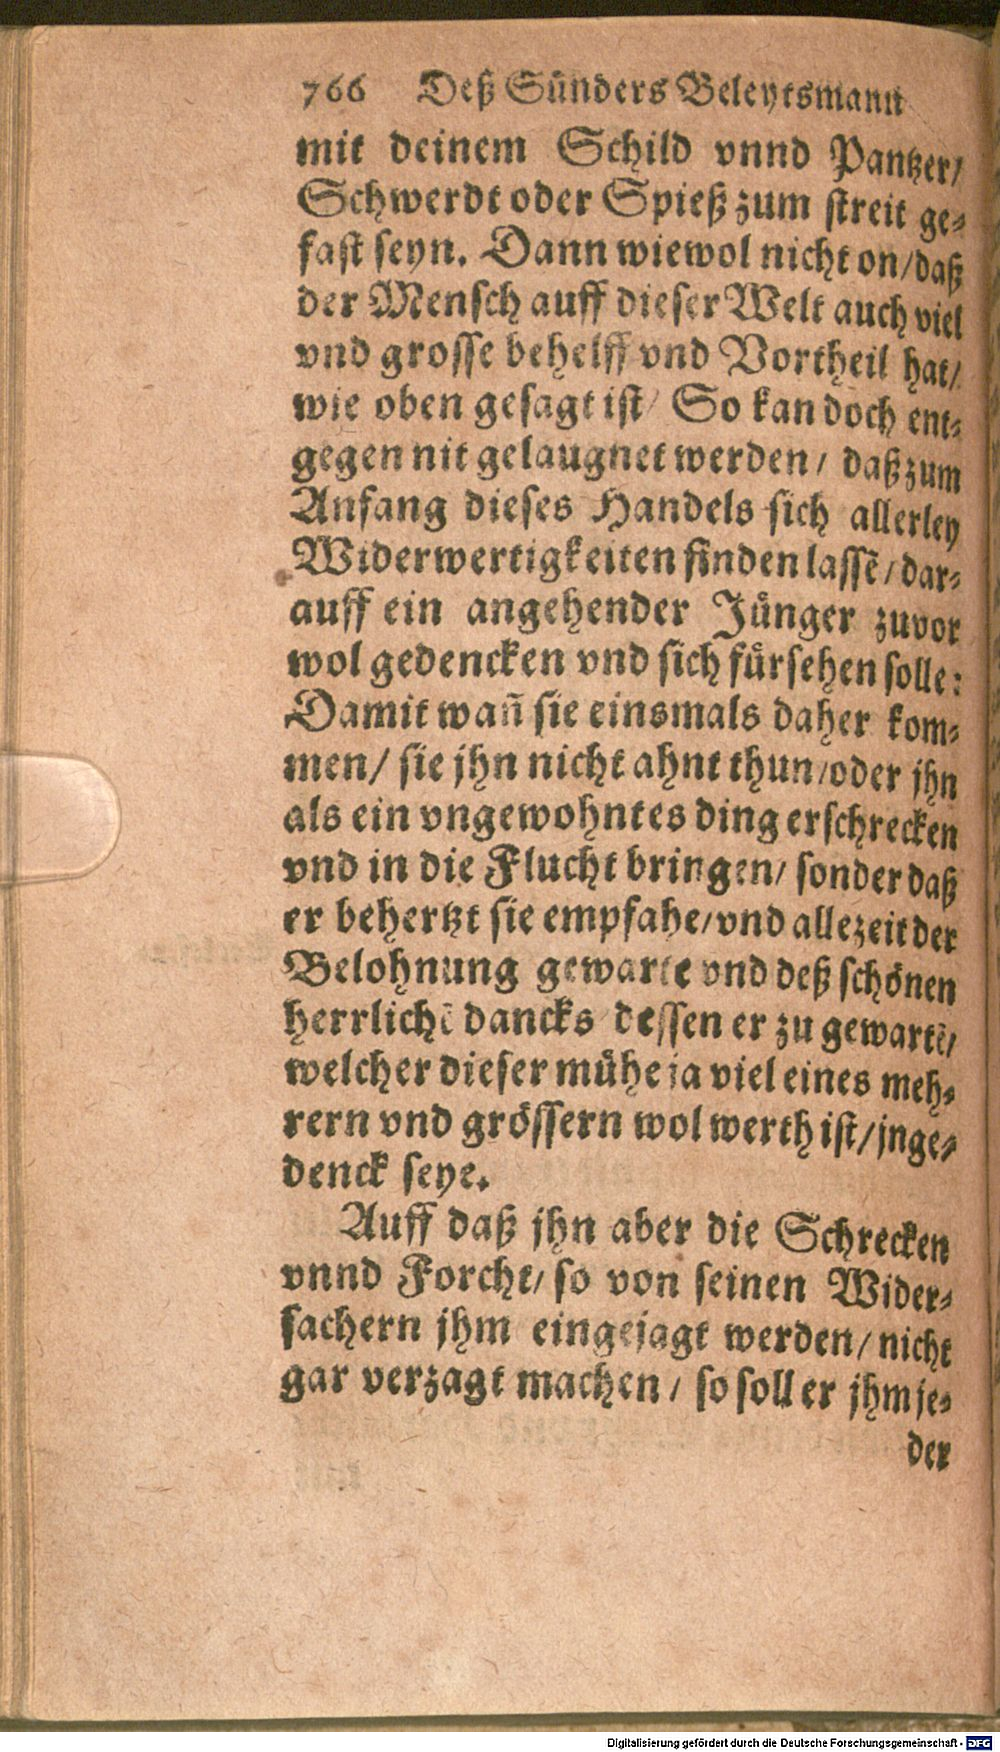 766 Deß Sünders Beleytsmann
mit deinem Schild vnnd Pantzer/
Schwerdt oder Spieß zum streit ge-
fast seyn. Dann wiewol nicht on/daß
der Mensch auff dieser Welt auch viel
vnd grosse behelff vnd Vortheil hat/
wie oben gesagt ist/ So kan doch ent-
gegen nit gelaugnet werden/ daß zum
Anfang dieses Handels sich allerley
Widerwertigkeiten finden lassẽ/dar-
auff ein angehender Jünger zuvor
wol gedencken vnd sich fürsehen solle:
Damit wañ sie einsmals daher kom-
men/ sie jhn nicht ahnt thun/oder jhn
als ein vngewohntes ding erschrecken
vnd in die Flucht bringen/ sonder daß
er behertzt sie empfahe/vnd allezeit der
Belohnung gewarte vnd deß schönen
herrlichẽ dancks dessen er zu gewartẽ/
welcher dieser mühe ja viel eines meh-
rern vnd grössern wol werth ist/jnge-
denck seye.
Auff daß jhn aber die Schrecken
vnnd Forcht/ so von seinen Wider-
sachern jhm eingejagt werden/ nicht
gar verzagt machen/ so soll er jhm je-
der
Digitalisierung gefördert durch die Deutsche Forschungsgemeinschaft - DFG